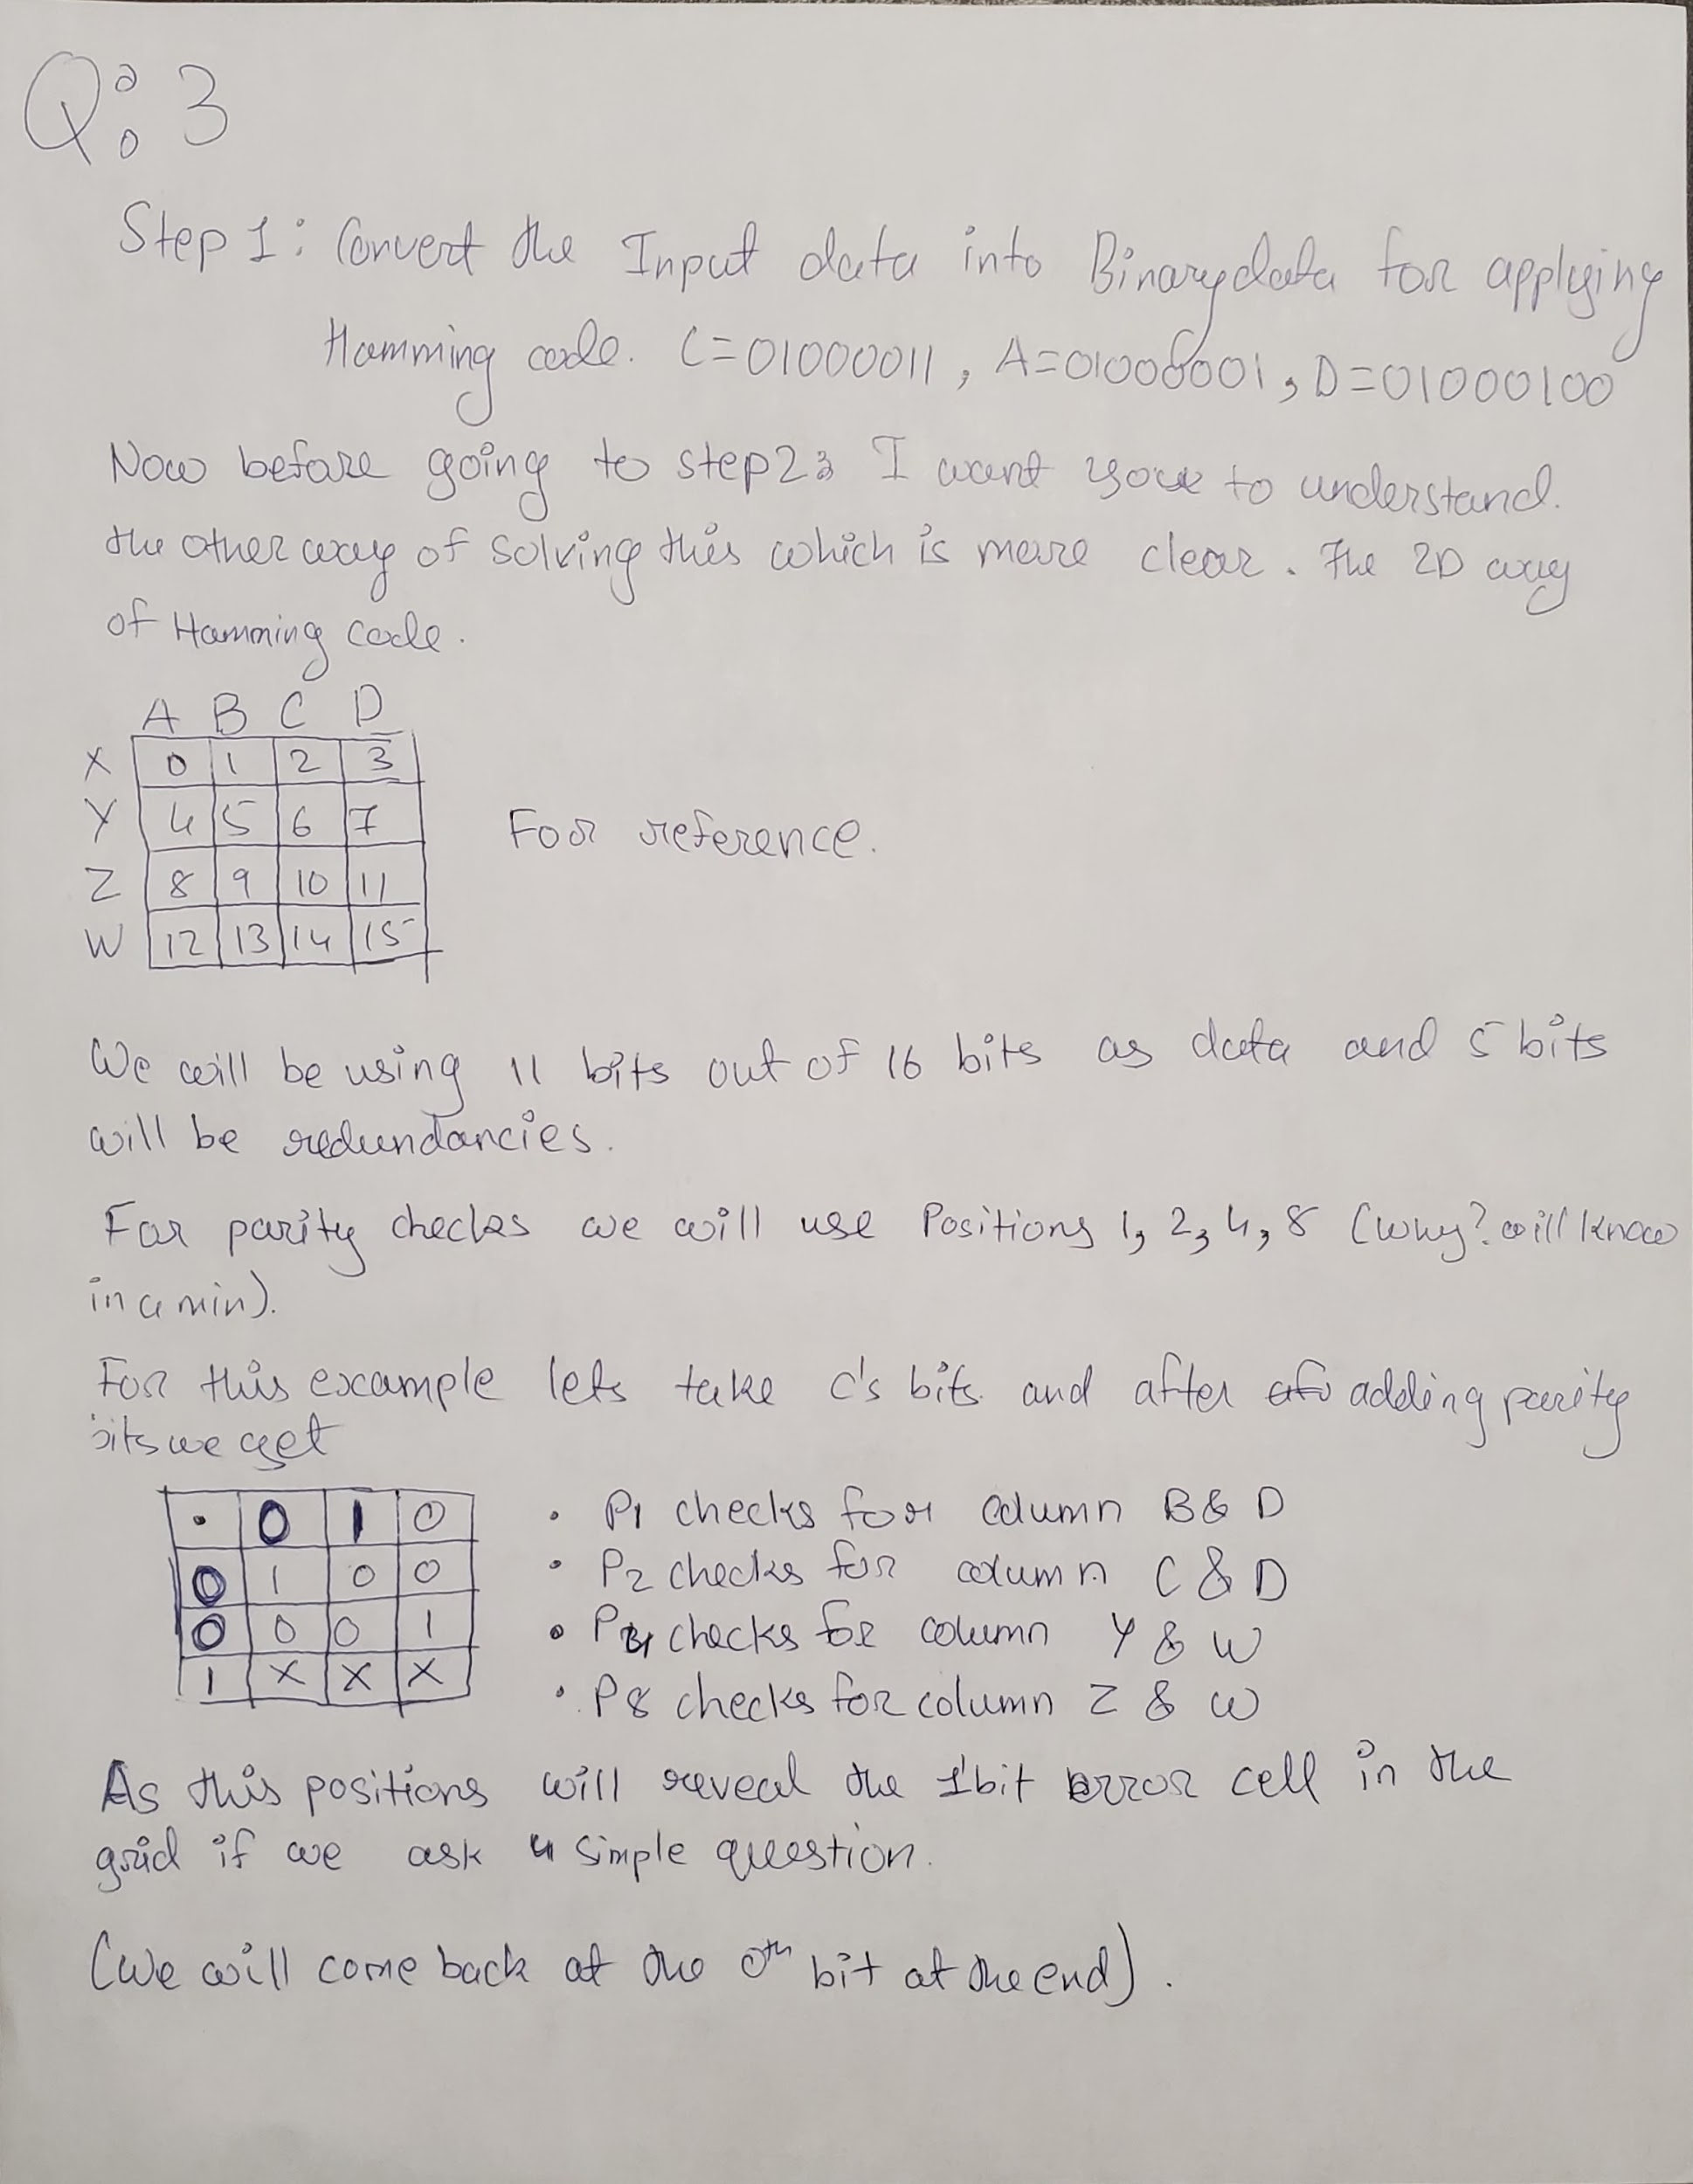 Q: 3
Step 1: Convert the Input data into Binary data for applying
Hamming code. C=01000011, A=01000001, D=01000100
Now before going to step2: I want you to understand.
the other way of solving this which is more clear. The 2D way
of Hamming code.
A B C D
X 0 1 2 3
Y 4 5 6 7
Z 8 9 10 11
W 12 13 14 15
For reference.
We will be using 11 bits out of 16 bits as data and 5 bits
will be redundancies.
For parity checks we will use Positions 1, 2, 4, 8 (Why? will know
in a min).
For this example lets take C's bits and after adding parity
bits we get
· 0 1 0
0 1 0 0
0 0 0 1
1 X X X
• P1 checks for column B & D
• P2 checks for column C & D
• P4 checks for column Y & W
• P8 checks for column Z & W
As this positions will reveal the 1bit error cell in the
grid if we ask 4 simple question.
(We will come back at the 0th bit at the end).